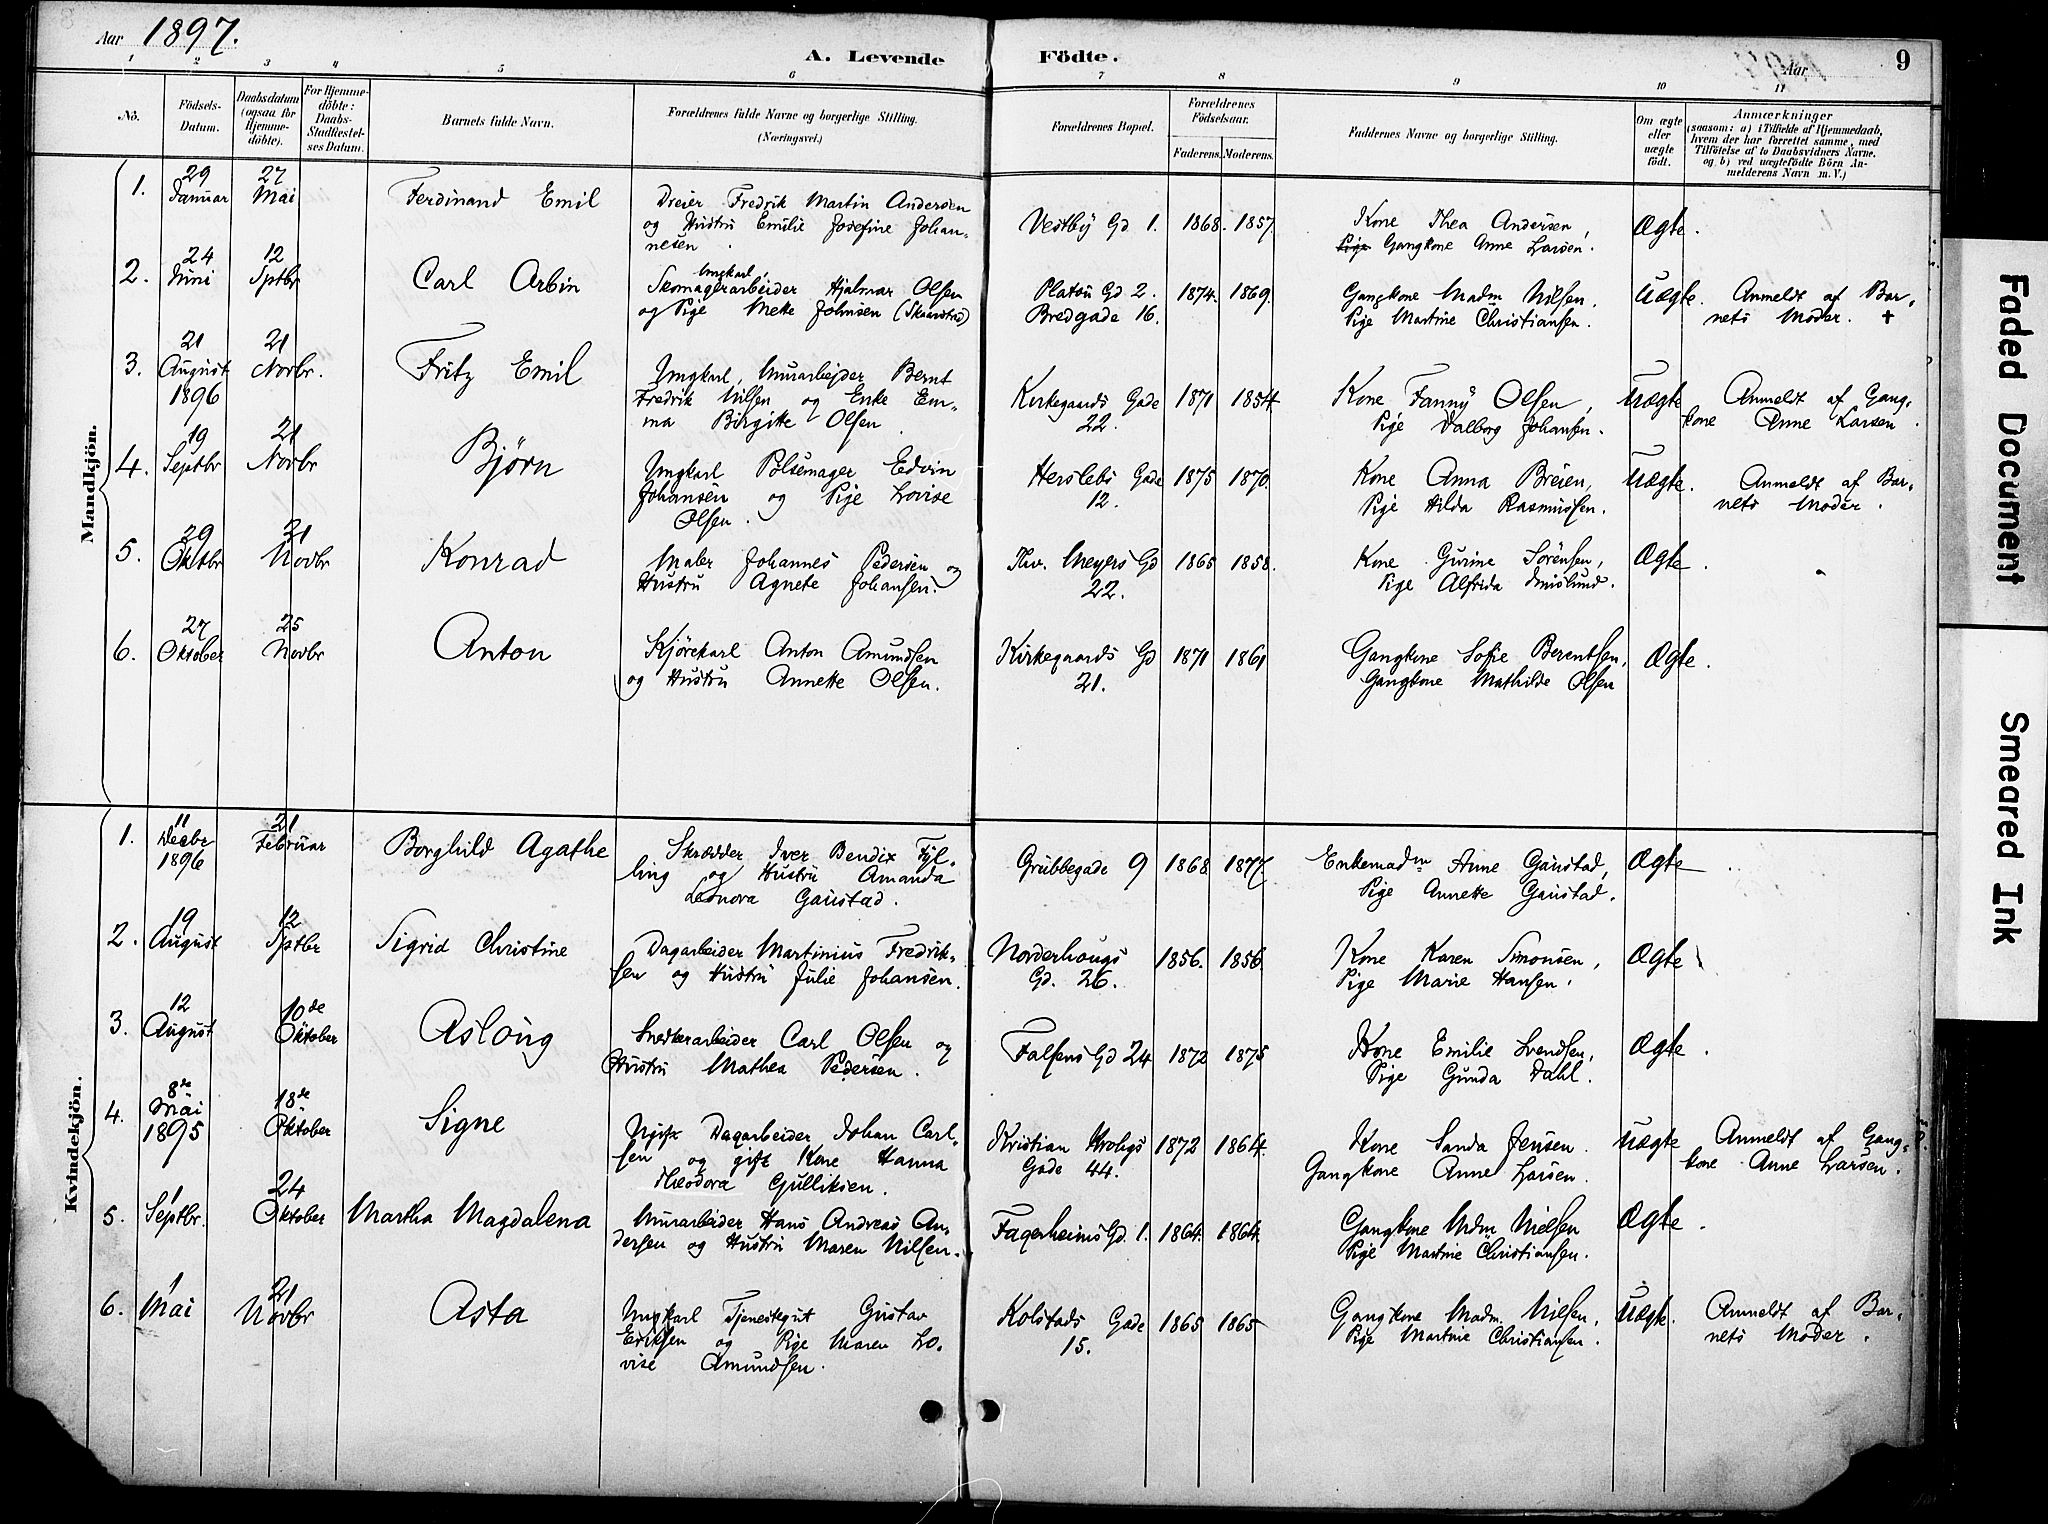 Aar 1897.
A. Levende Födte.
Aar
9
1 2 3 4 5 6 7 8 9 10 11
No.
Födsels-Datum.
Daabsdatum (ogsaa for Hjemmedöbte).
For Hjemmedöbte: Daabs-Stadfæstelses Datum.
Barnets fulde Navn.
Forældrenes fulde Navne og borgerlige Stilling. (Næringsvei.)
Forældrenes Bopæl.
Forældrenes Födselsaar.
Faderens. Moderens.
Faddernes Navne og borgerlige Stilling.
Om ægte eller uægte födt.
Anmærkninger
(saasom: a) i Tilfælde af Hjemmedaab, hvem der har forrettet samme, med Tilföielse af to Daabsvidners Navne. og b) ved uægtefödte Börn Anmelderens Navn m. V.)
Mandkjön.
1. 29 Januar 27 Mai Ferdinand Emil
Dreier Fredrik Martin Andersen
og Hustru Emilie Josefine Johan-
nesen.
Vestby Gd 1. 1868. 1857.
Kone Thea Andersen,
Pige Gangkone Anne Larsen.
Ægte.
2. 24 Juni 12 Sptbr Carl Arbin
Ungkarl,
Skomagerarbeider Hjalmar Olsen
og Pige Mette Johnsen (Skaarstad)
Platou Gd 2.
Bredgade 16.
1874. 1869.
Gangkone Madm Nilsen.
Pige Martine Christiansen.
Uægte. Anmeldt af Bar-
nets Moder. +
3. 21 August 1896 21 Novbr. Fritz Emil
Ungkarl, Murarbejder Bernt
Fredrik Nilsen og Enke Em-
ma Birgitte Olsen
Kirkegaards Gade
22.
1871 1854
Kone Fanny Olsen,
Pige Valborg Johansen.
Uægte Anmeldt af Gang-
kone Anne Larsen.
4. 19 Septbr 21 Novbr Bjørn
Ungkarl Pølsemager Edvin
Johansen og Pige Lovise
Olsen.
Herslebs Gade
12.
1875 1870.
Kone Anna Breien,
Pige Hilda Rasmussen.
Uægte. Anmeldt af Bar-
nets Moder.
5. 29 Oktbr 21 Novbr Konrad
Maler Johannes Pedersen og
Hustru Agnete Johansen.
Thv. Meyers Gd
22.
1865 1858.
Kone Gurine Sörensen,
Pige Alfrida
Ægte.
6. 27 Oktober 25 Novbr Anton
Kjørekarl Anton Amundsen
og Hustru Annette Olsen.
Kirkegaards Gd
21.
1871 1861
Gangkone Sofie Berentsen,
Gangkone Mathilde Olsen
Ægte.
Kvindekjön.
1. 11 Decbr 1896 21 Februar Borghild Agathe
Skrædder Iver Bendix Fyl-
ling og Hustru Amanda
Leonora Gaustad.
Grubbegade 9 1868 1877.
Enkemadm Anne Gaustad,
Pige Annette Gaustad.
Ægte.
2. 19 August 12 Sptbr Sigrid Christine
Dagarbeider Martinius Fredrik-
sen og Hustru Julie Johansen.
Norderhougs
Gd. 26.
1856. 1856.
Kone Karen Simonsen,
Pige Marie Hansen.
Ægte
3. 12 August 10de Oktober Aslaug
Snedkerarbeider Carl Olsen og
Hustru Mathea Pedersen.
Falsens Gd 24 1872 1875
Kone Emilie Svendsen,
Pige Gunda Dahl.
Ægte.
4. 8de Mai 1895 18de Oktober Signe
Ugift Dagarbeider Johan Carl-
sen og gift Kone Hanna
Theodora Gulliksen.
Kristian Krohgs
Gade 44.
1872 1864.
Kone Sanda Jensen.
Gangkone Anne Larsen.
Uægte Anmeldt af Gang-
kone Anne Larsen.
5. 1 Septbr. 24 Oktober Martha Magdalena
Murarbeider Hans Andreas An-
dersen og Hustru Maren Nilsen.
Fagerheims Gd. 1. 1864. 1864.
Gangkone Mdm Nielsen
Pige Martine Christiansen.
Ægte.
6. 1 Mai 21 Novbr Asta
Ungkarl Tjenestegut Gustav
Eriksen og Pige Maren Lo-
vise Amundsen.
Kolstads Gade
15.
1865 1865
Gangkone Madm. Nielsen,
Pige Martine Christiansen.
Uægte. Anmeldt af Bar-
nets Moder.
Faded Document
Smeared Ink